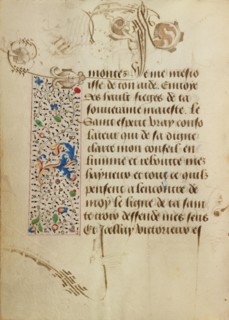 montes
iste de ton aide Enuoye
des haulx sieges de ta
souueraine maieste. Le
Saint esperit vray conso
lateur qui de sa digne
clarte mon conseil en
lumine et reboute mes
hayneux et tous ce quilz
pensent a lencontre de
moy le signe de ta sain
te croix deffende mes sens
Et victorieux es